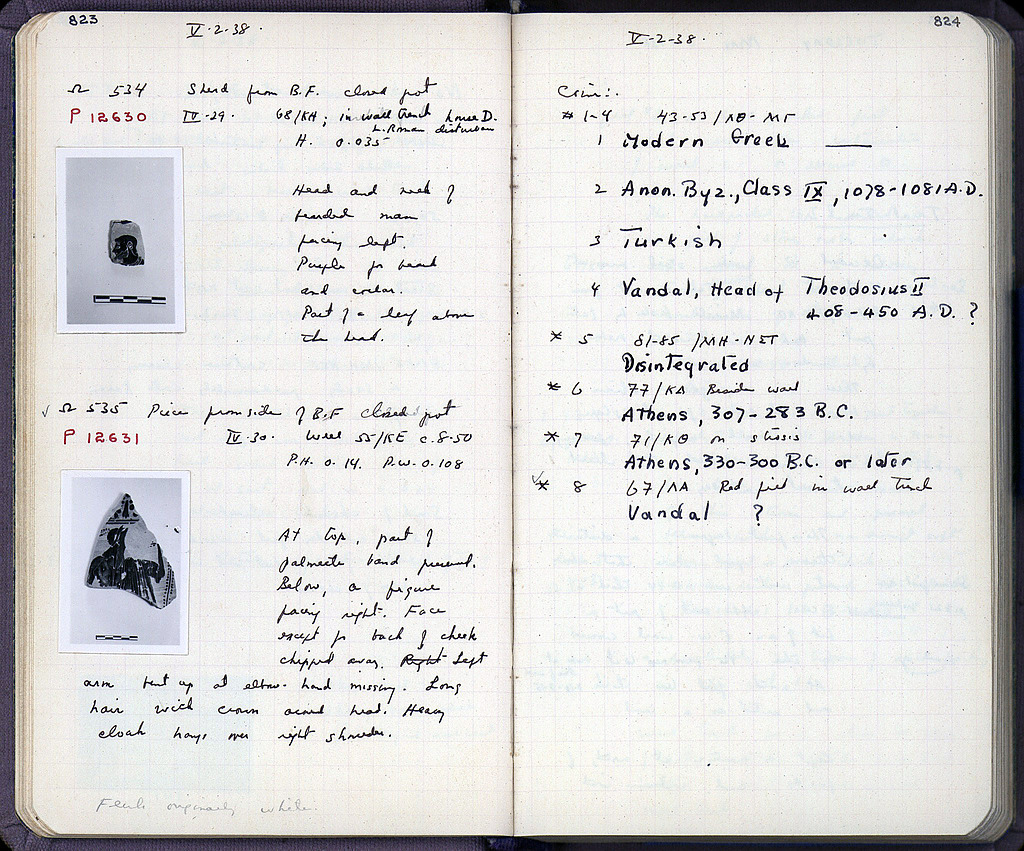 823
V-2-38.
Ω 534 Sherd from B.F. closed pot
P 12630 IV-29. 68/KA; in wall trench house D.
L. Roman disturbance
H. 0.035
Head and neck of
bearded man
facing left.
Purple for beard
and collar.
Part of a leaf above
the head.
√ Ω 535 Piece from side of B.F closed pot
P 12631 IV-30. Well 55/KE c. 8.50
P.H. 0.14. P.W. 0.108
At top, part of
palmette band preserved.
Below, a figure
facing right. Face
except for back of cheek
chipped away. Right Left
arm bent up at elbow - hand missing. Long
hair with crown around head. Heavy
cloak hangs over right shoulder.
Flesh originally white.
824
V-2-38.
Coins:
# 1-4 43-53/ΛΘ-ΜΓ
1 Modern Greek
2 Anon. Byz., Class IX, 1078-1081 A.D.
3 Turkish
4 Vandal, Head of Theodosius II
408-450 A.D. ?
* 5 81-85/MH-NΣΤ
Disintegrated
* 6 77/KA Beside wall
Athens, 307-283 B.C.
* 7 71/KΘ on stosis
Athens, 330-300 B.C. or later
√ * 8 67/ΛΑ Red fill in wall trench
Vandal ?